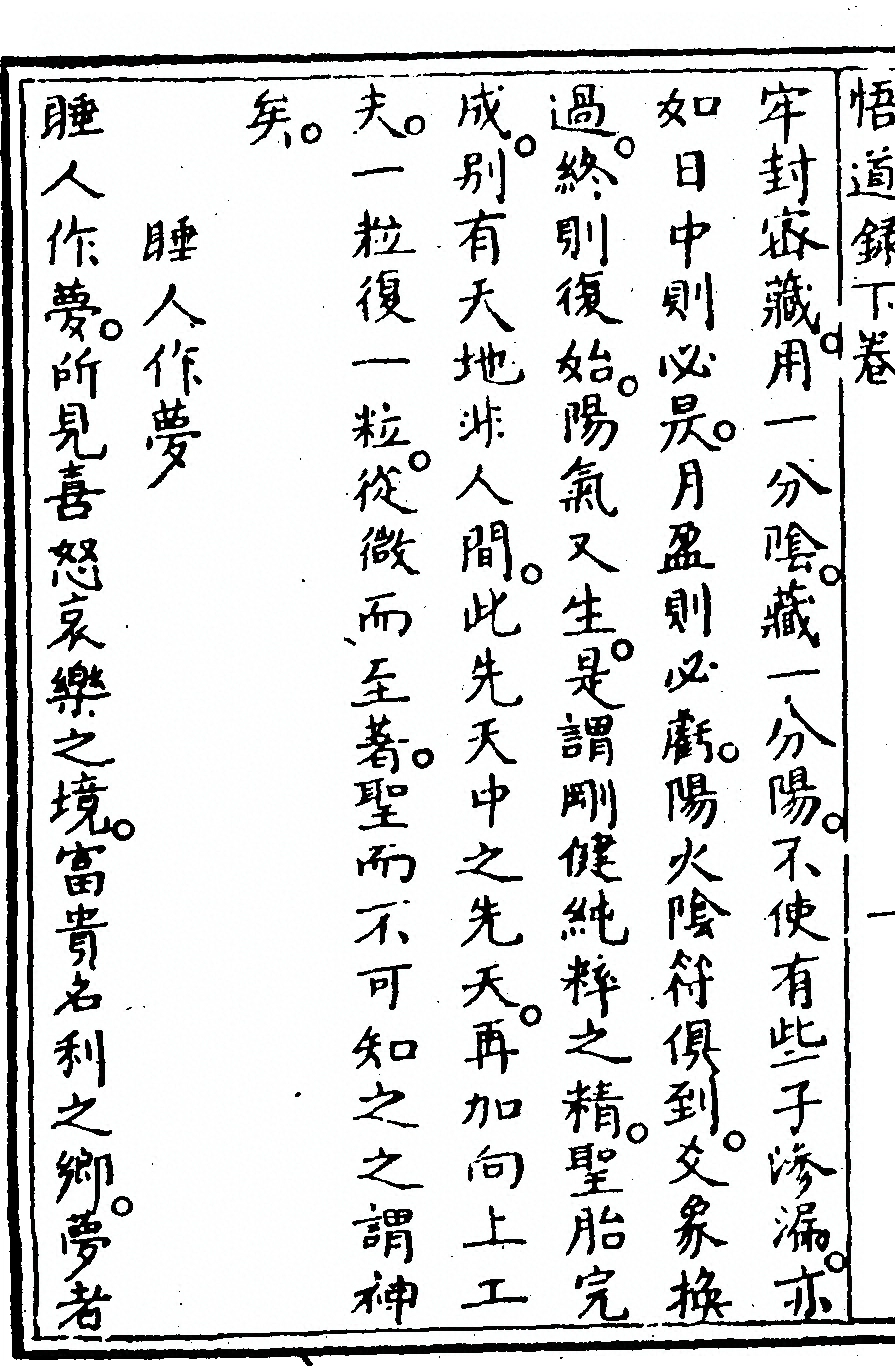 悟道録下卷 一
牢封密藏。用一分陰。藏一分陽。不使有些子滲漏。亦
如日中則必昃。月盈則必虧。陽火陰符俱到。爻象換
過。終則復始。陽氣又生。是謂剛健純粹之精。聖胎完
成。別有天地非人間。此先天中之先天。再加向上工
夫。一粒復一粒。從微而至著。聖而不可知之之謂神
矣。
睡人作夢
睡人作夢。所見喜怒哀樂之境。富貴名利之鄉。夢者